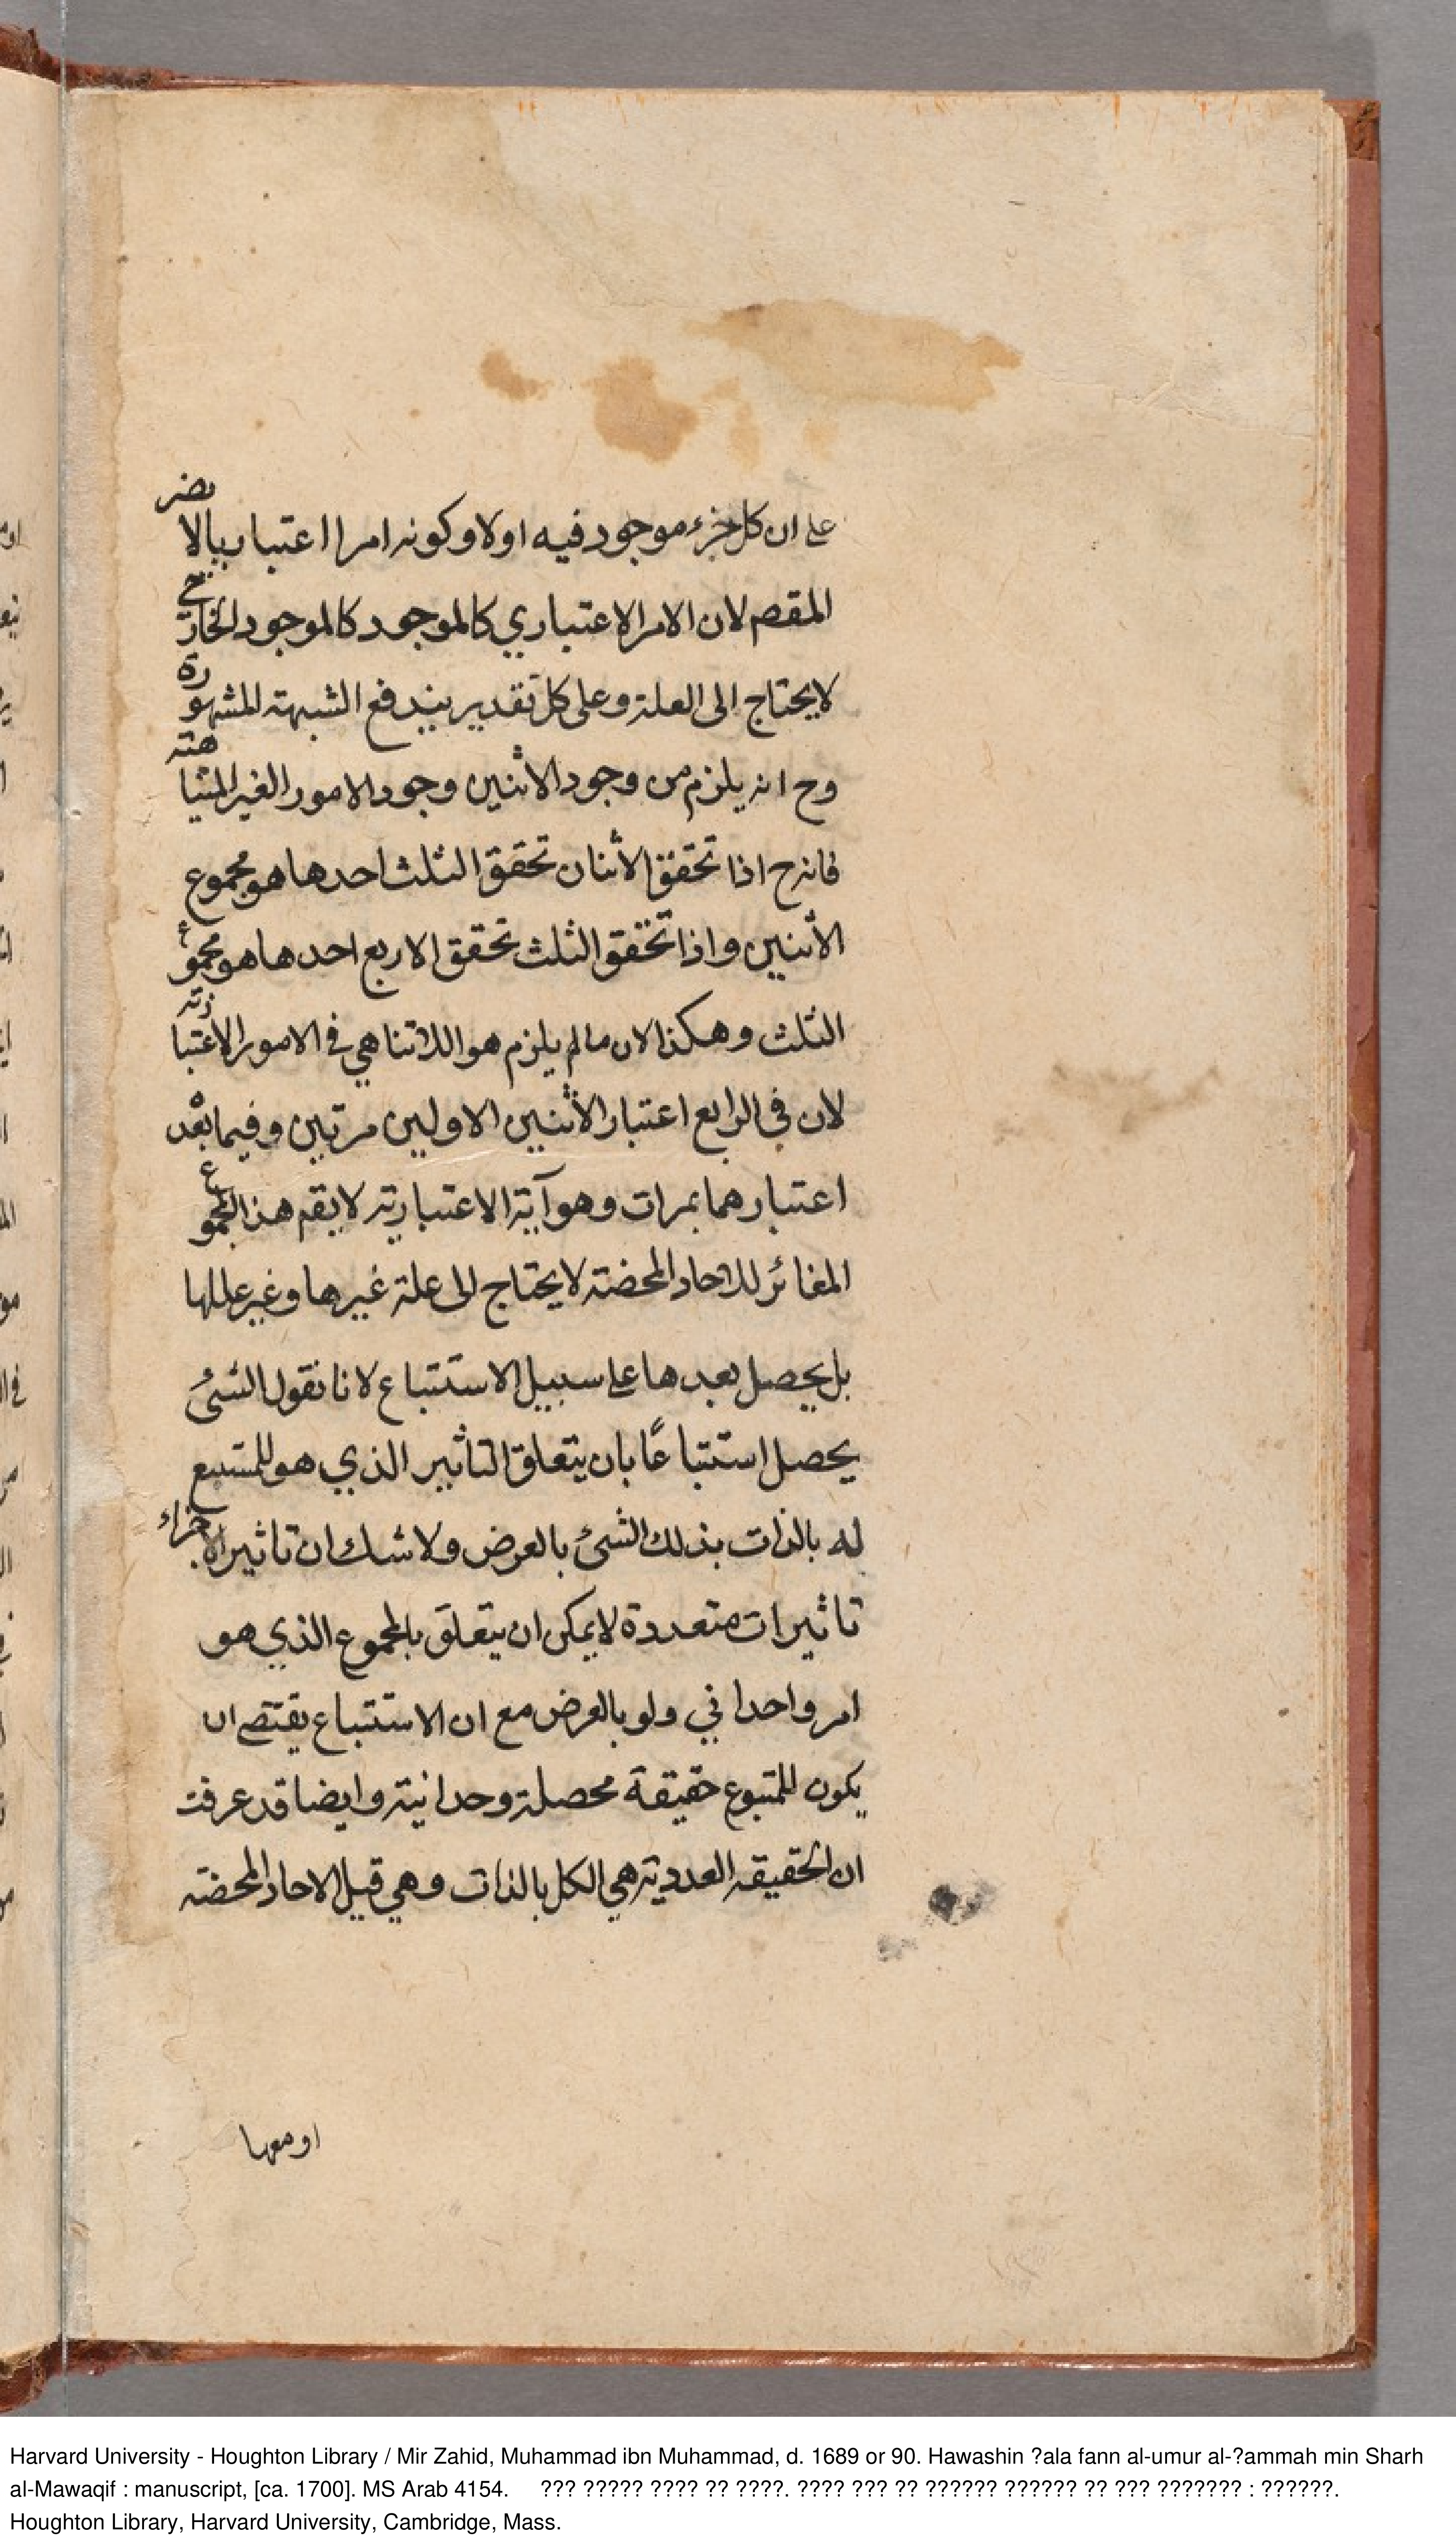 على ان كل جزء موجود فيه اولا وكونه امرا اعتباريا لا يضر
المقصم لان الامر الاعتباري كالموجود كالموجود الخارجي
لا يحتاج الى العلة وعلى كل تقدير يندفع الشبهة المشهورة
وح انه يلزم من وجود الاثنين وجود الامور الغير المتناهية
فانه ح اذا تحقق الاثنان تحقق الثلث احدها هو مجموع
الاثنين واذا تحقق الثلث تحقق الاربع احدها هو مجموع
الثلث وهكذا لان ما لم يلزم هو اللاتناهي في الامور الاعتبارية
لان في الرابع اعتبار الاثنين الاولين مرتين وفيما بعده
اعتبارهما بمرات وهو آية الاعتبارية لا يقم هذا المجموع
المغائر للاحاد المحضة لا يحتاج الى علة غيرها وغير عللها
بل يحصل بعدها على سبيل الاستتباع لانا نقول الشئ
يحصل استتباعًا بان يتعلق التاثير الذي هو للمستتبع
له بالذات بذلك الشئ بالعرض ولا شك ان تاثير الاجزاء
تاثيرات متعددة لا يمكن ان يتعلق بالمجموع الذي هو
امر واحداني ولو بالعرض مع ان الاستتباع يقتضي ان
يكون للمتبوع حقيقة محصلة وحدانية وايضا قد عرفت
ان الحقيقة العددية هي الكل بالذات وهي قبل الاحاد المحضة
او معها
Harvard University - Houghton Library / Mir Zahid, Muhammad ibn Muhammad, d. 1689 or 90. Hawashin ?ala fann al-umur al-?ammah min Sharh
al-Mawaqif : manuscript, [ca. 1700]. MS Arab 4154. ??? ????? ???? ?? ????. ???? ??? ?? ?????? ?????? ?? ??? ??????? : ??????.
Houghton Library, Harvard University, Cambridge, Mass.